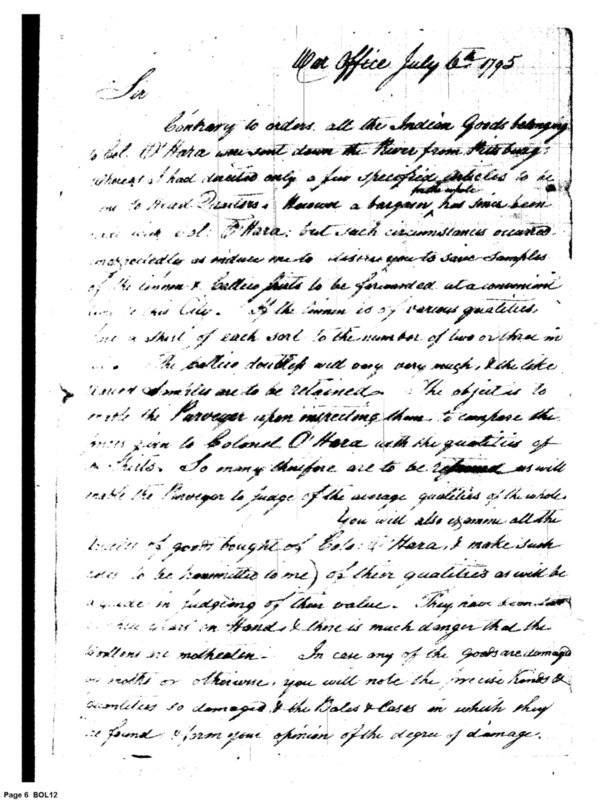 War Office July 6th 1795
Sir
Contrary to orders all the Indian Goods belonging
to Col. O'Hara were sent down the River from Pittsburg:
whereas I had directed only a few specified articles to be
sent to Head Quarters. However a bargain for the whole has since been
made with Col. O'Hara; but such circumstances occurred
unexpectedly as induce me to desire you to save samples
of the linnen & Callico shirts to be forwarded at a convenient
time to this City. If the linnen is of various qualities,
save a shirt of each sort to the number of two or three in
all. The callico doubtless will vary very much, & the like
samples are to be retained. The object is to
enable the Purveyor upon inspecting them to compare the
prices given to Colonel O'Hara with the qualities of
the shirts. So many therefore are to be as will
enable the Purveyor to judge of the average qualities of the whole.
You will also examine all the
articles of goods bought of Colo. O'Hara, & make such
notes (to be transmitted to me) of their qualities as will be
a guide in judgeing of their value. They have been
years on Hand, & there is much danger that the
woollens are motheaten. In case any of the goods are damaged
by moths or otherwise, you will note the precise kinds &
quantities so damaged & the Bales & Cases in which they
are found & form your opinion of the degree of damage.
Page 6 BOL12